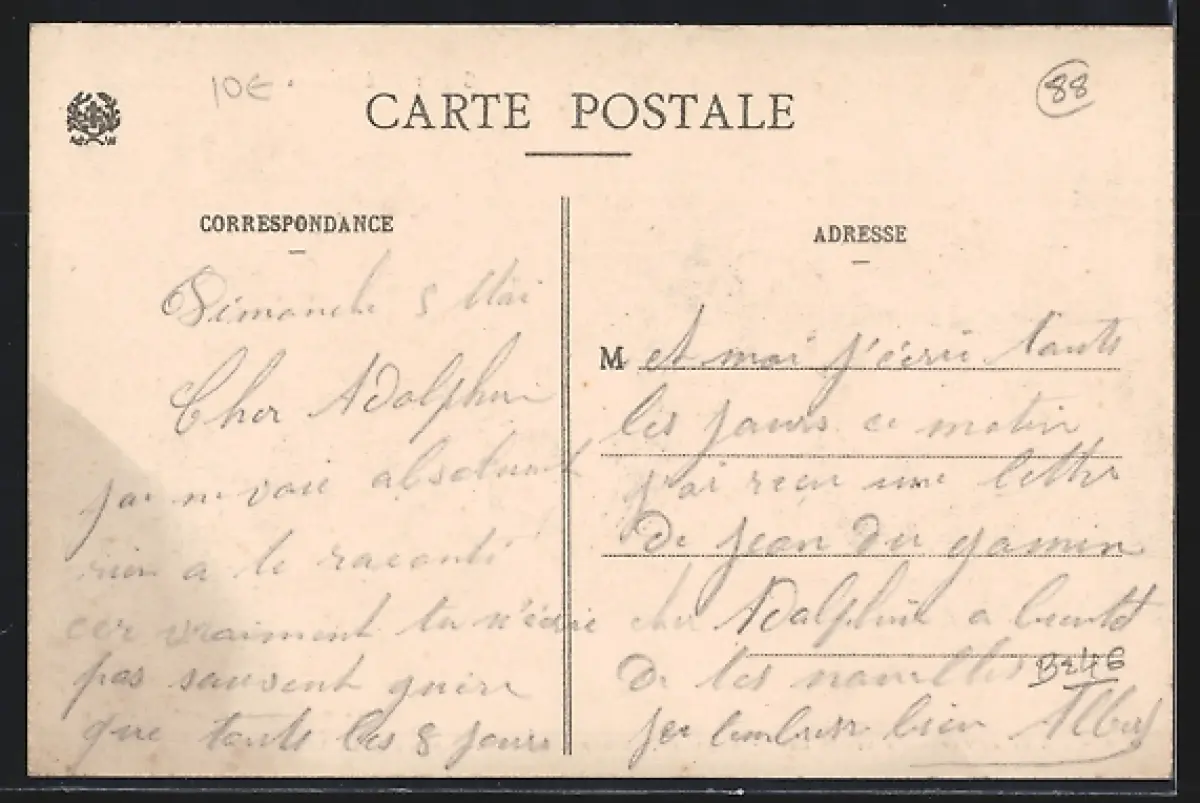 10€
CARTE POSTALE
88
CORRESPONDANCE
Dimanche 5 Mai
Cher Adolphin
absolument
rien a te raconté
car vraiment tu n'écrie
pas souvent guère
que touts les 8 jours
ADRESSE
M et moi j'écrie touts
les jours ce matin
j'ai reçu une lettre
De Jean Du gamin
cher Adolphin a bientot
De tes nouvelles
bien Albert